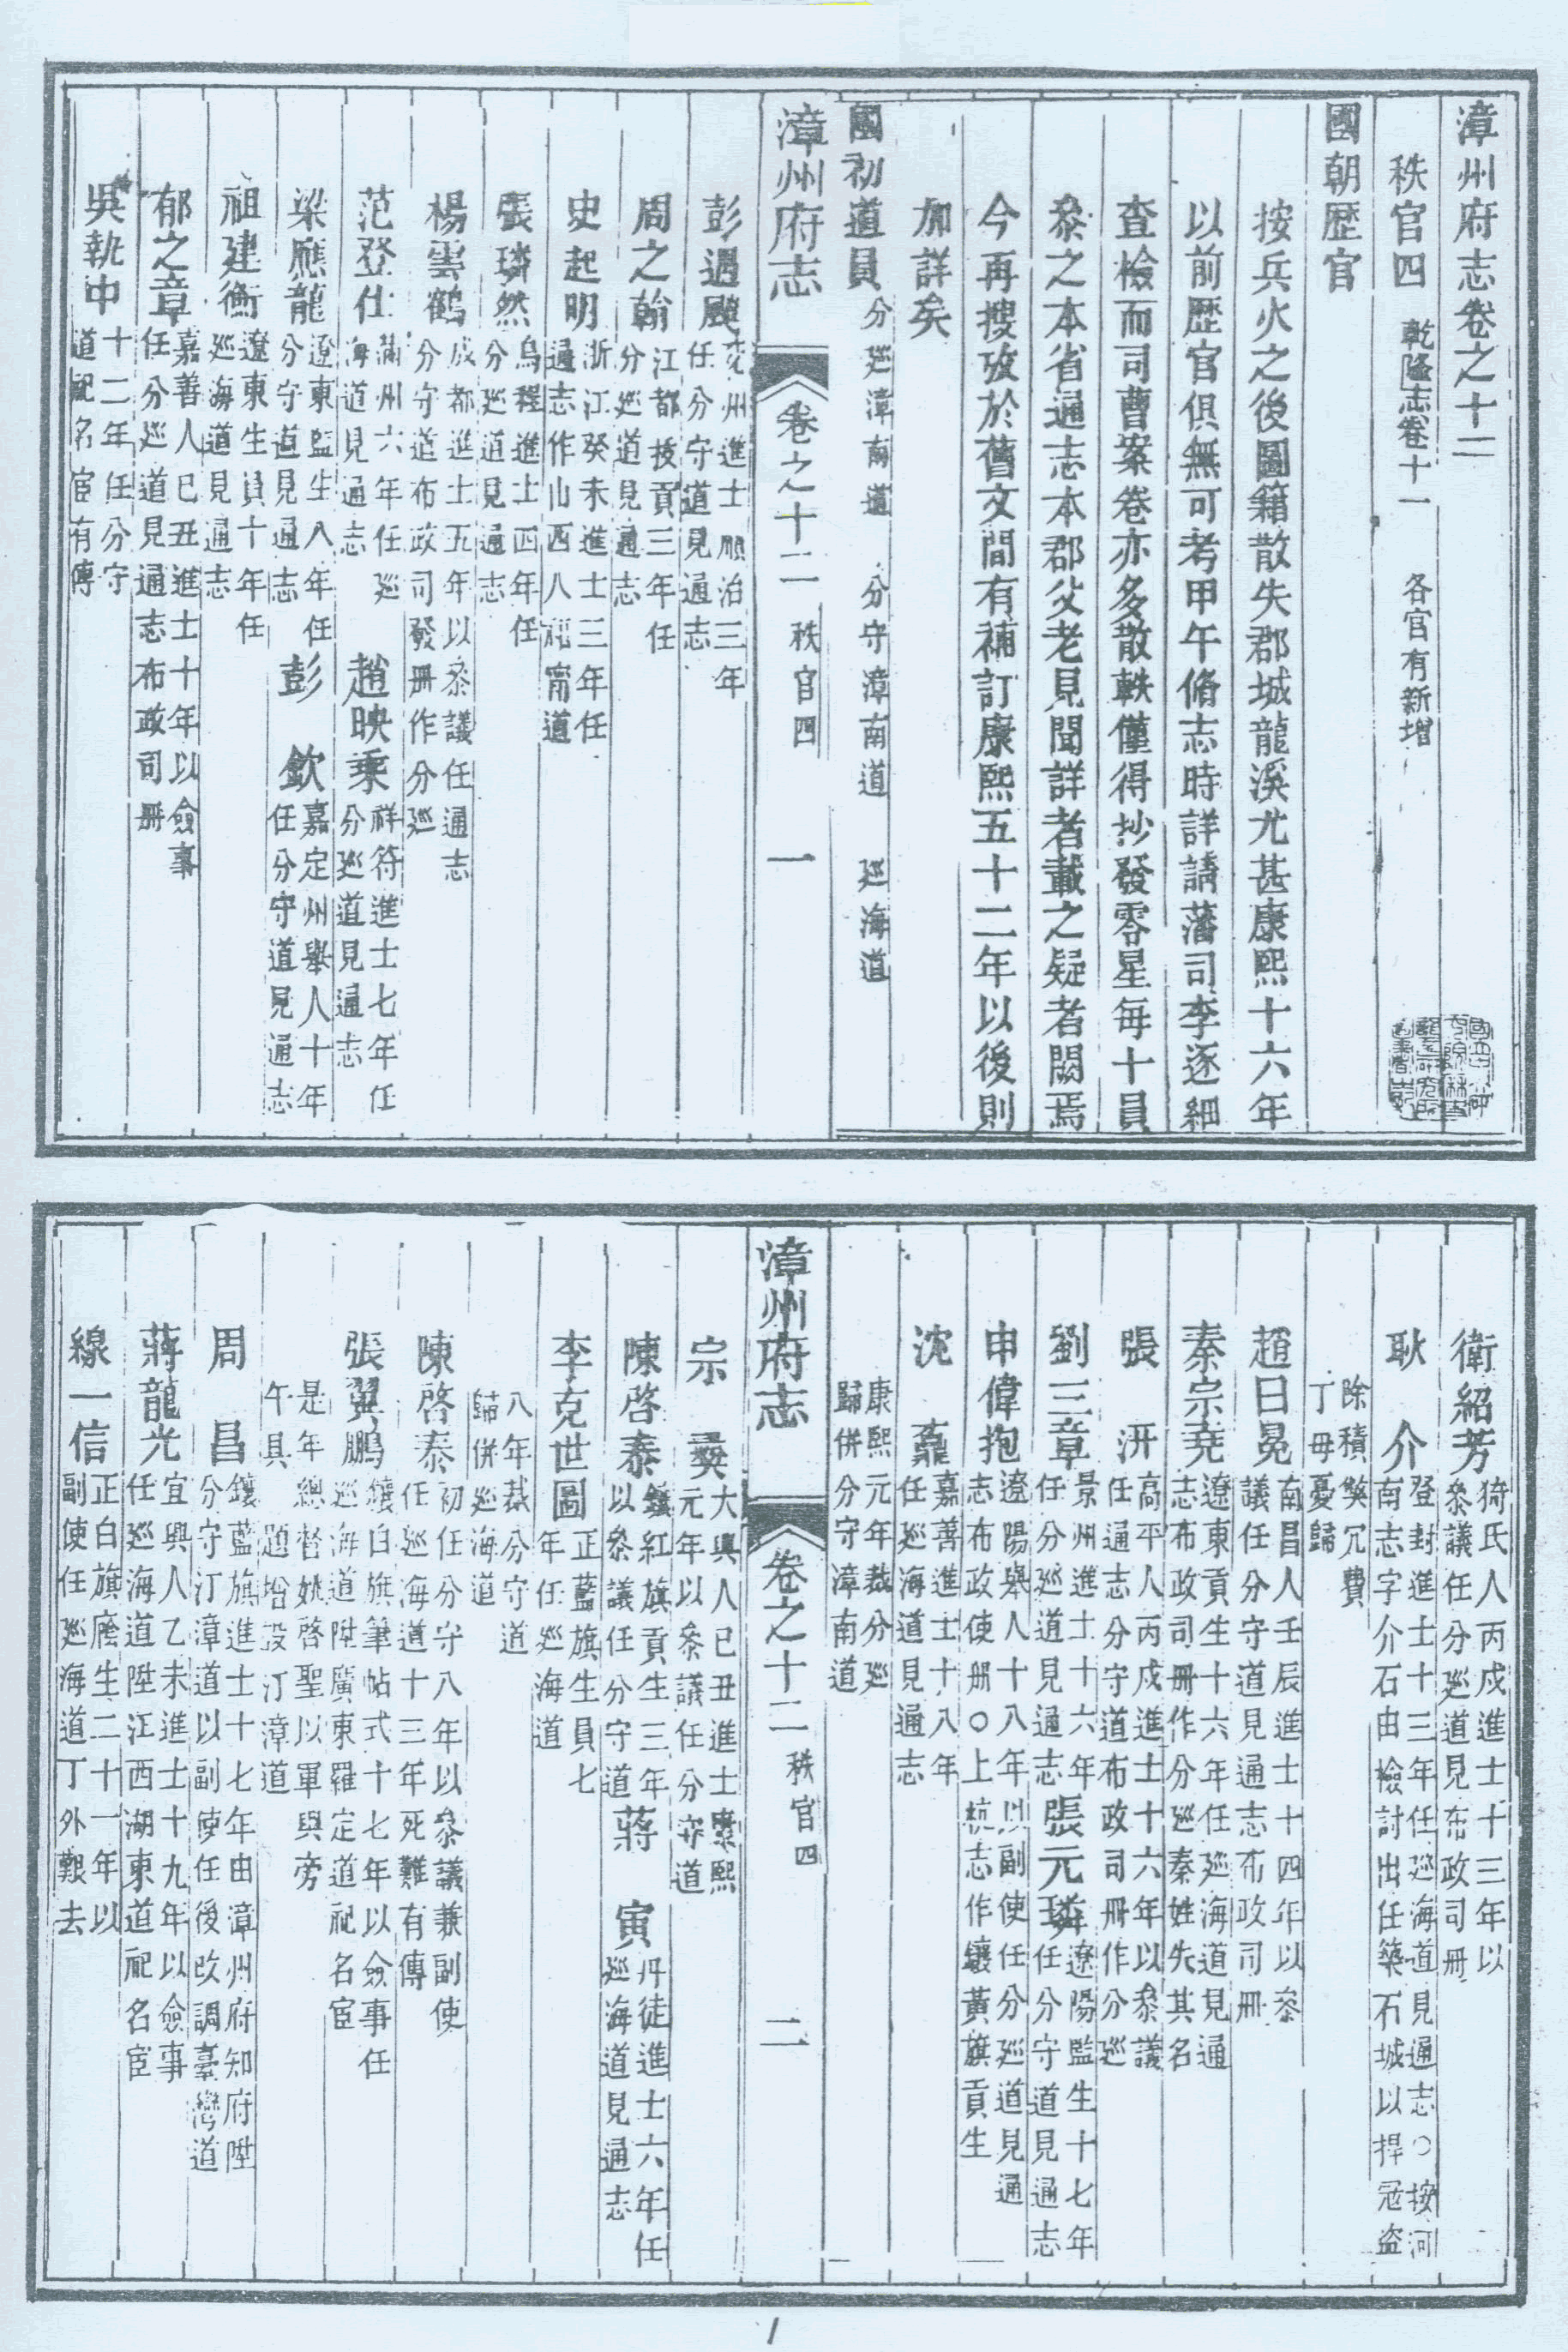 漳州府志卷之十二
秩官四 乾隆志卷十一 各官有新增
國朝歷官
按兵火之後圖籍散失郡城龍溪尤甚康熙十六年
以前歷官俱無可考甲午脩志時詳請藩司李逐細
查檢而司曹案卷亦多散軼僅得抄發零星每十員
叅之本省通志本郡父老見聞詳者載之疑者闕焉
今再搜攷於舊文間有補訂康熙五十二年以後則
加詳矣
國初道員 分廵漳南道 分守漳南道 廵海道
漳州府志 卷之十二 秩官四 一
彭遇颽 州進士順治三年
任分守道見通志
周之翰 江都拔貢三年任
分廵道見通志
史起明 浙江癸未進士三年任
通志作山西人 甯道
張璘然 烏程進士四年任
分廵道見通志
楊雲鶴 成都進士五年以叅議任通志
分守道布政司發册作分廵
范登仕 滿州六年任廵
海道見通志
趙映乘 祥符進士七年任
分廵道見通志
梁應龍 遼東監生八年任
分守道見通志
彭 欽 嘉定州舉人十年
任分守道見通志
祖建衡 遼東生員十年任
廵海道見通志
郁之章 嘉善人己丑進士十年以僉事
任分廵道見通志布政司册
吳執中 十二年任分守
道祀名宦有傳
衛紹芳 猗氏人丙戍進士十三年以
叅議任分廵道見布政司册
耿 介 登封進士十三年任廵海道見通志○按河
南志字介石由檢討出任築石城以捍冦盗
除積獘冗費
丁母憂歸
趙日冕 南昌人壬辰進士十四年以叅
議任分守道見通志布政司册
秦宗堯 遼東貢生十六年任廵海道見通
志布政司册作分廵秦姓失其名
張 汧 高平人丙戍進士十六年以叅議
任通志分守道布政司册作分廵
劉三章 景州進士十六年
任分廵道見通志
張元璘 遼陽監生十七年
任分守道見通志
申偉抱 遼陽舉人十八年以副使任分廵道見通
志布政使册○上杭志作鑲黃旗貢生
沈 鼐 嘉善進士十八年
任廵海道見通志
康熙元年裁分廵
歸併分守漳南道
漳州府志 卷之十二 秩官四 二
宗 彞 大興人己丑進士康熙
元年以叅議任分守道
陳啓泰 鑲紅旗貢生三年
以叅議任分守道
蔣 寅 丹徒進士六年任
廵海道見通志
李克世圖 正藍旗生員七
年任廵海道
八年裁分守道
歸併廵海道
陳啓泰 初任分守八年以叅議兼副使
任廵海道十三年死難有傳
張翼鵬 鑲白旗筆帖式十七年以僉事任
廵海道陞廣東羅定道祀名宦
是年總督姚啓聖以軍興旁
午具題增設汀漳道
周 昌 鑲藍旗進士十七年由漳州府知府陞
分守汀漳道以副使任後改調臺灣道
蔣龍光 宜興人乙未進士十九年以僉事
任廵海道陞江西湖東道祀名宦
線一信 正白旗廕生二十一年以
副使任廵海道丁外艱去
1